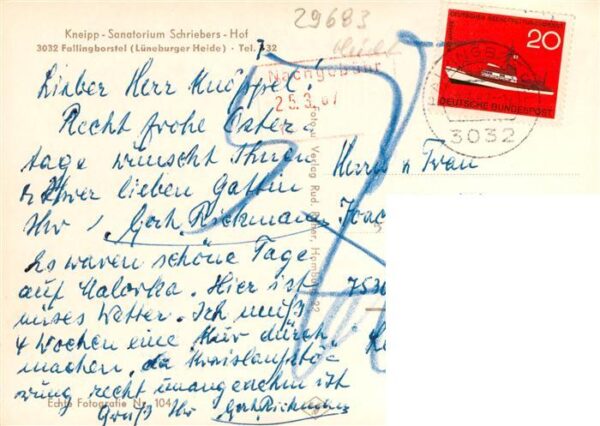 Kneipp-Sanatorium Schriebers-Hof
3032 Fallingbostel (Lüneburger Heide) · Tel. 732
29683
Nachgebühr
25.3.67
DEUTSCHE BUNDESPOST
20
3032
Lieber Herr Knöppel!
Recht frohe Oster-
tage wünscht Ihnen
u Ihrer lieben Gattin
Ihr Gerh Rickmann
Es waren schöne Tage
auf Malorka. Hier ist
mieses Wetter. Ich muß
4 Wochen eine Kur durch
machen, da Kreislaufstö
rung recht unangenehm ist
Gruß Ihr Gerh. Rickmann
Herrn u Frau
Joac
7530
Foto u. Verlag Rud. Reher, Hamburg 22
Echte Fotografie Nr. 104